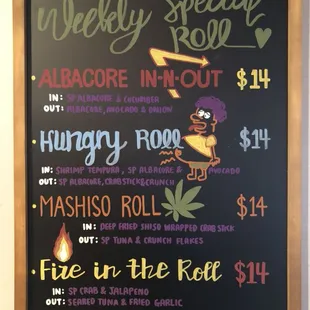 Weekly Special
Roll
• ALBACORE IN-N-OUT $14
IN: SP ALBACORE & CUCUMBER
OUT: ALBACORE, AVOCADO & ONION
• Hungry Roll $14
IN: SHRIMP TEMPURA, SP ALBACORE & AVOCADO
OUT: SP ALBACORE, CRABSTICK & CRUNCH
• MASHISO ROLL $14
IN: DEEP FRIED SHISO WRAPPED CRAB STICK
OUT: SP TUNA & CRUNCH FLAKES
• Fire in the Roll $14
IN: SP CRAB & JALAPENO
OUT: SEARED TUNA & FRIED GARLIC